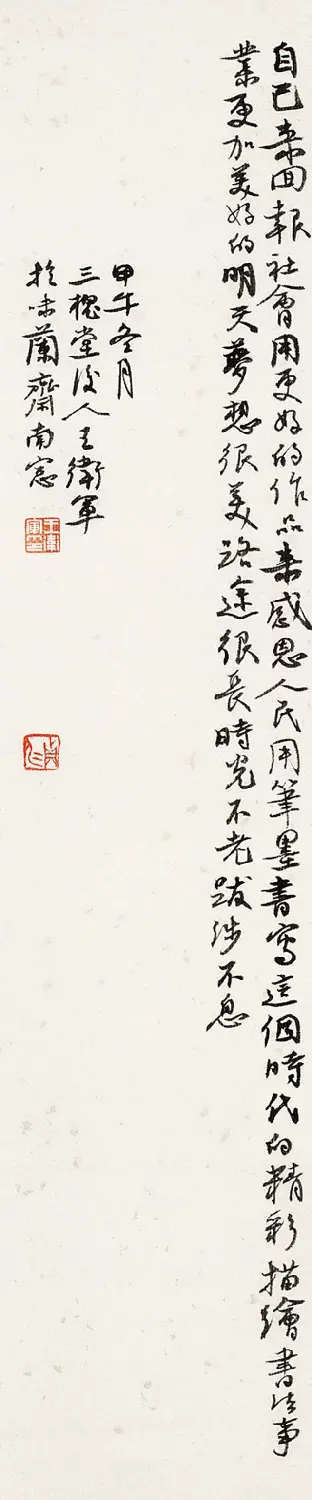 自己来回報社會用更好的作品来感恩人民用筆墨書寫這個時代的精彩描繪書法事
業更加美好的明天夢想很美路途很長時光不老跋涉不息
甲午冬月
三槐堂後人王衛軍
於味蘭齋南窓